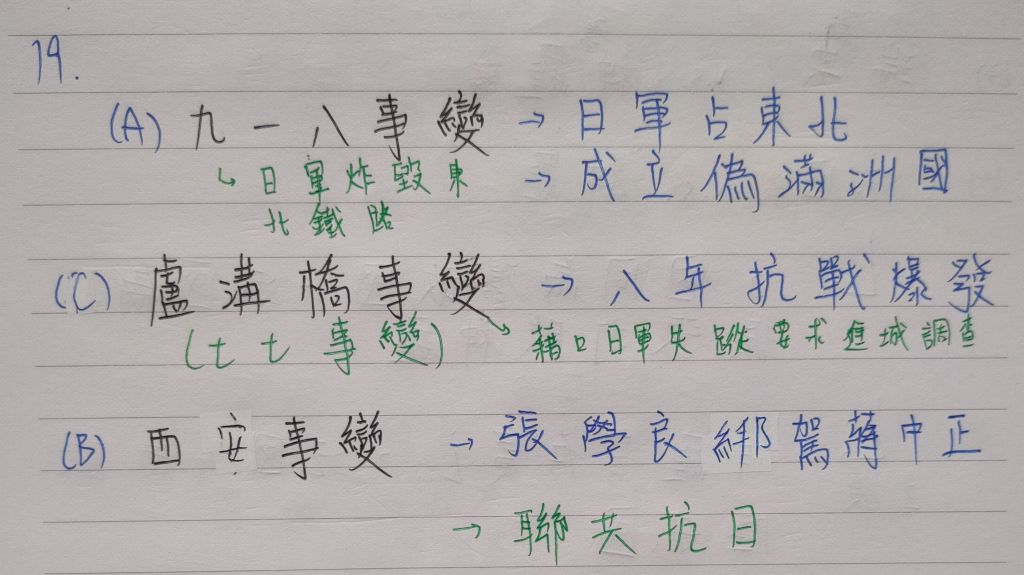 19.
(A) 九一八事變 → 日軍占東北
↳ 日軍炸毀東 → 成立偽滿洲國
北鐵路
(C) 盧溝橋事變 → 八年抗戰爆發
(七七事變) ↘ 藉口日軍失蹤要求進城調查
(B) 西安事變 → 張學良綁駕蔣中正
→ 聯共抗日